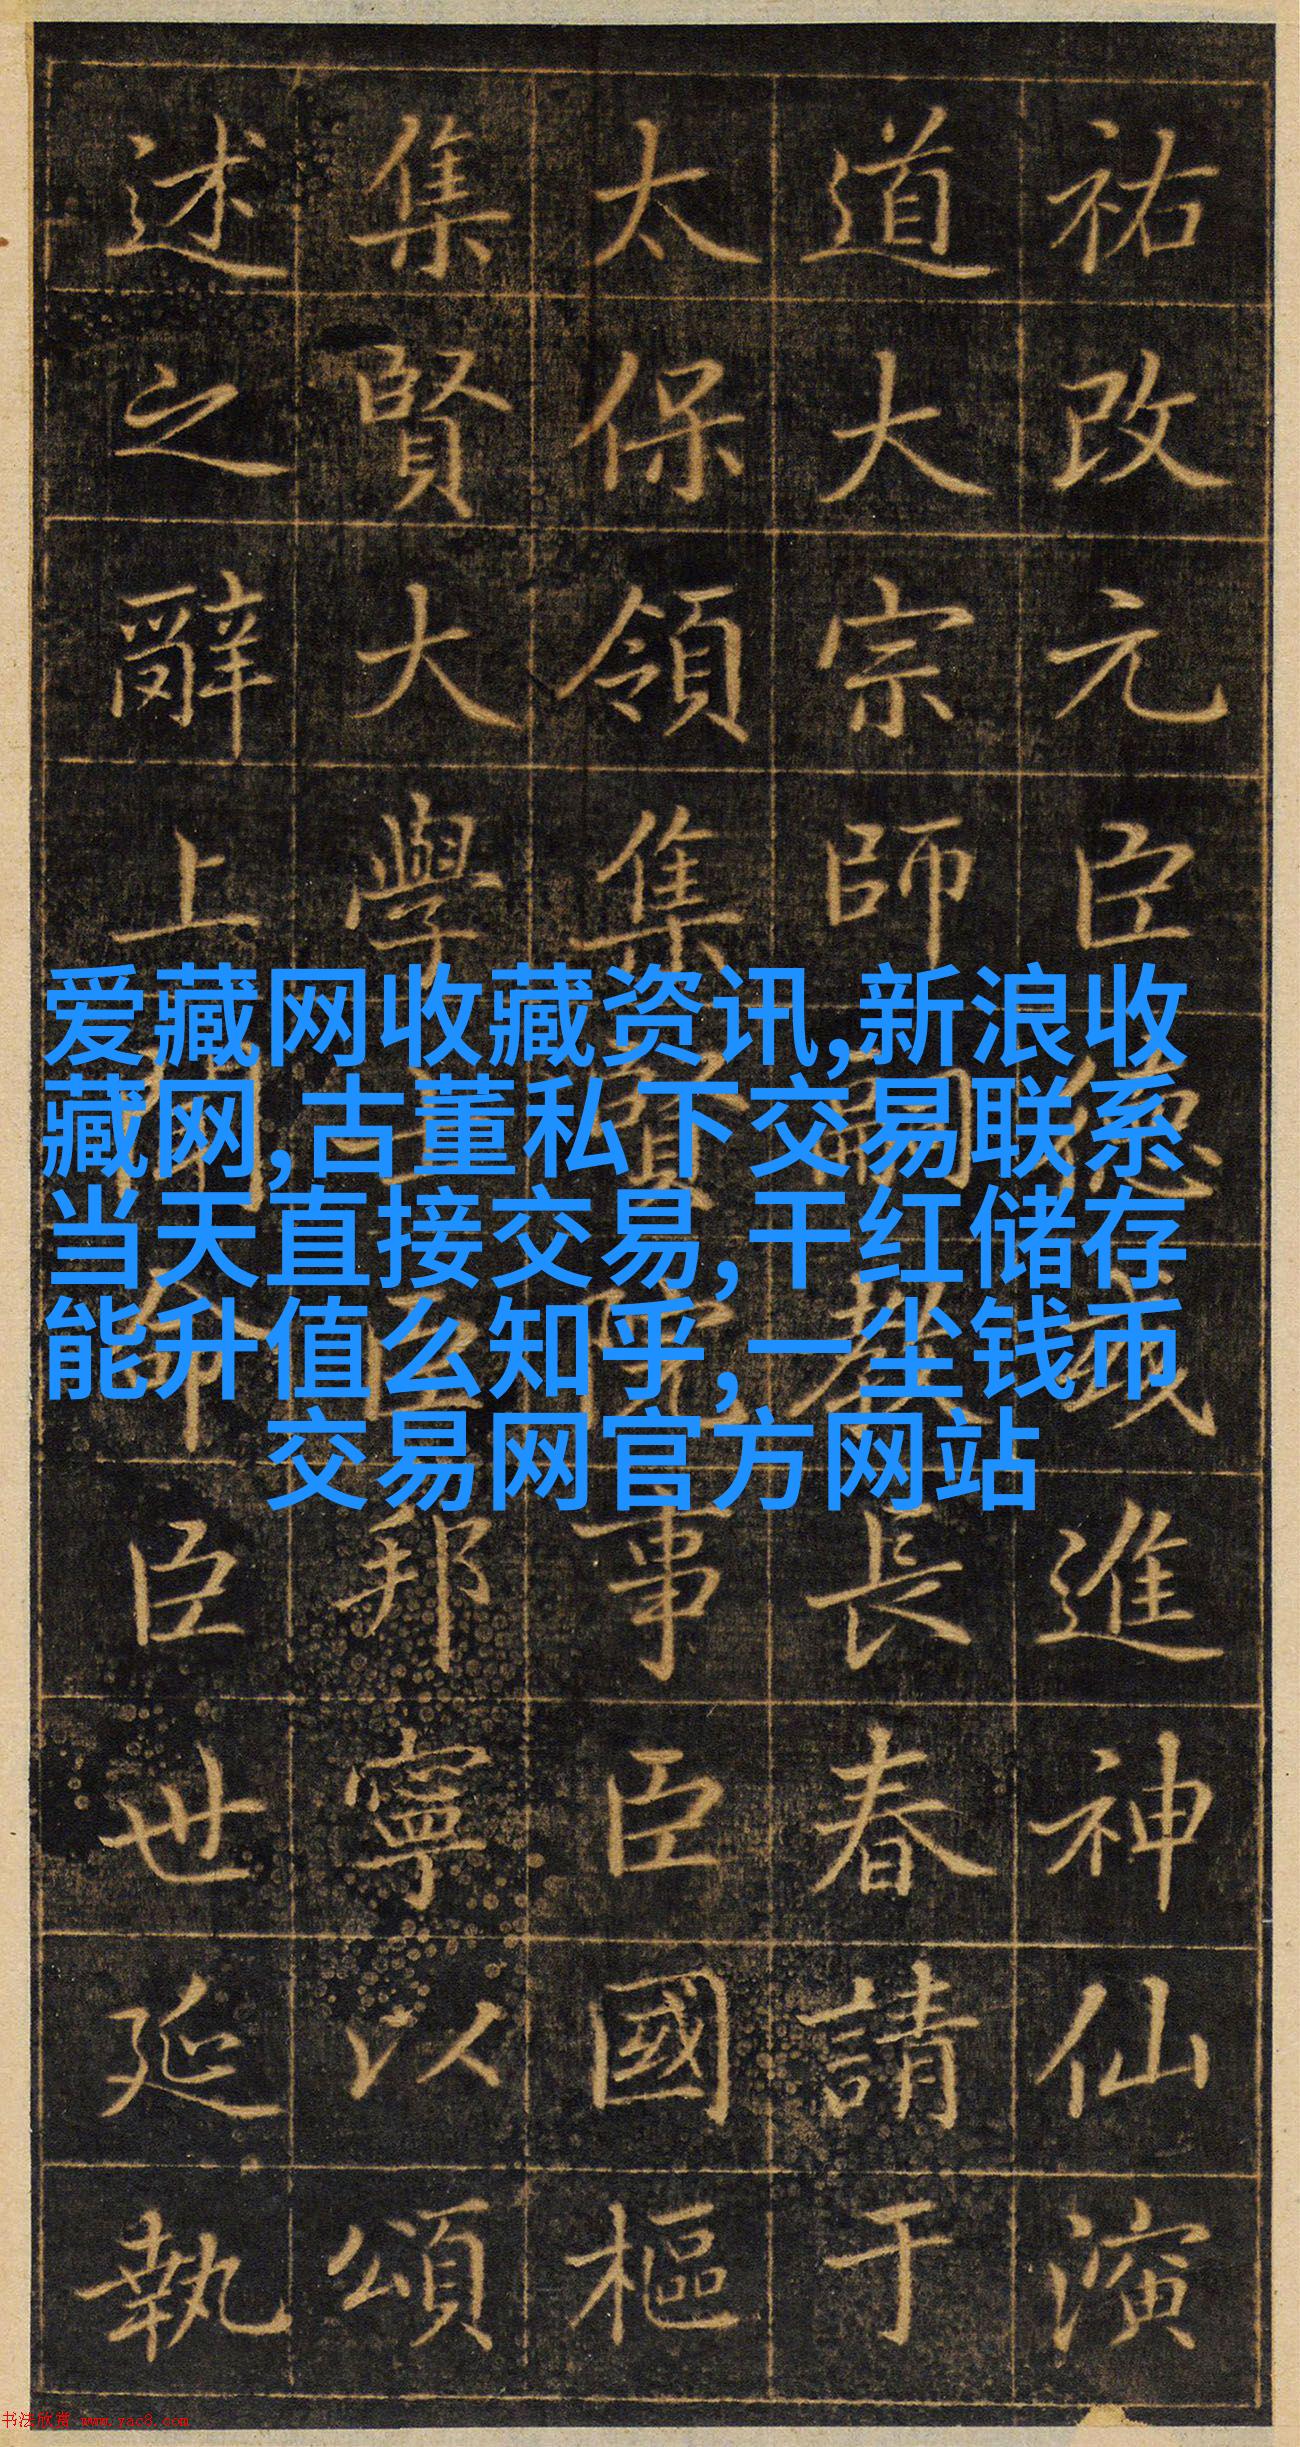 祐改元臣德彧進神仙演
道大宗師嗣教長春請于
太保領集賢院事臣國樞
集賢大學士臣邦寧以頌
述之辭上聞命臣世延執
爱藏网收藏资讯,新浪收
藏网,古董私下交易联系
当天直接交易,干红储存
能升值么知乎,一尘钱币
交易网官方网站
书法欣赏 www.yac8.com